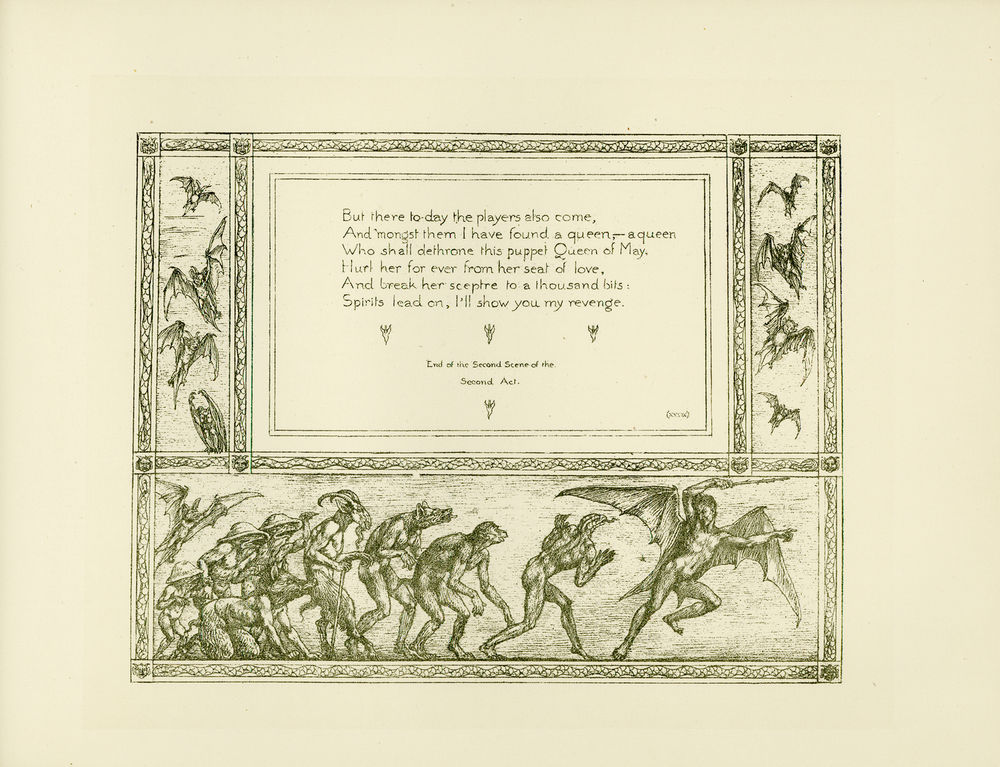 But there to-day the players also come,
And 'mongst them I have found a queen,— a queen
Who shall dethrone this puppet Queen of May,
Hurl her for ever from her seat of love,
And break her sceptre to a thousand bits:
Spirits lead on, I'll show you my revenge.
End of the Second Scene of the
Second Act.